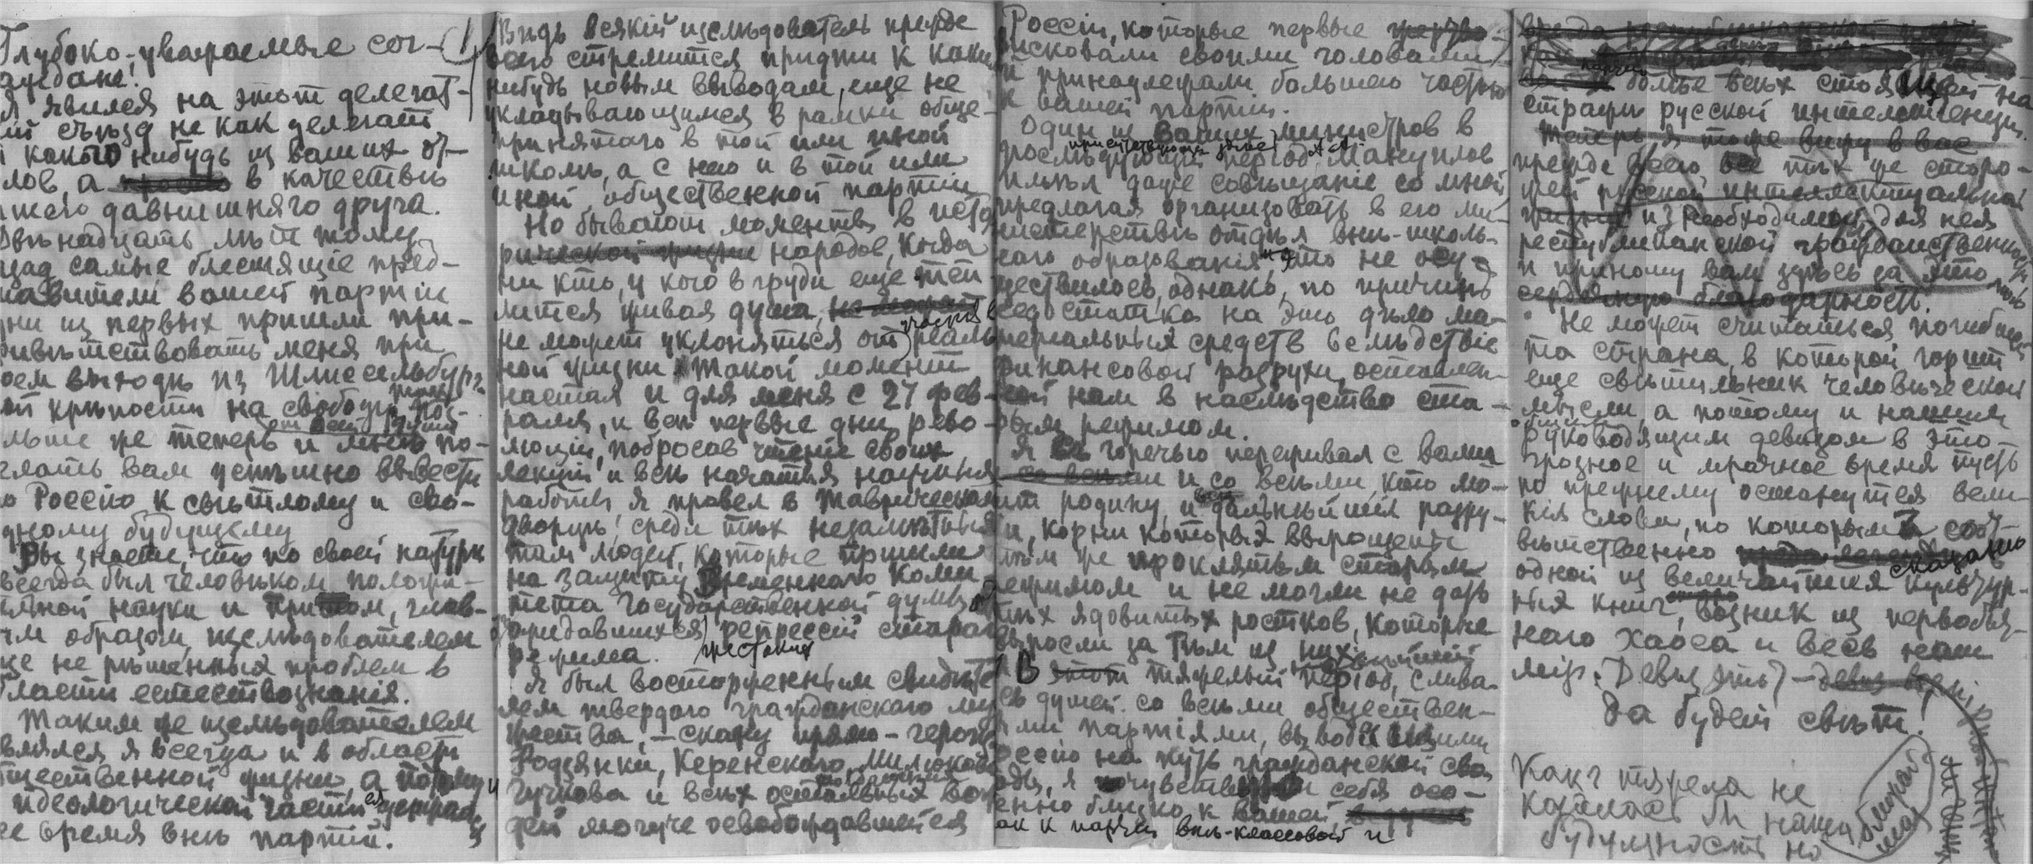 Глубоко-уважаемые сог-
раждане!
Я явился на этот делегат-
ий съѣзд не как делегат
какого нибудь из ваших от-
лов, а в качествѣ
шего давнишняго друга.
Двѣнадцать лѣт тому
зад самые блестящіе пред-
тавители вашей партіи
дни из первых пришли при-
вѣтствовать меня при
оем выходѣ из Шлиссельбург-
ой крѣпости на свободу.
льте же теперь и мнѣ по-
елать вам успѣшно вывести
ю Россію к свѣтлому и сво-
дному будущему
Вы знаете, что по своей натурѣ
всегда был человѣком положи-
тельной науки и притом, глав-
ым образом, изслѣдователем
ще не рѣшенных проблем в
бласти естествознанія.
Таким же изслѣдователем
являлся я всегда и в области
бщественной жизни, а потому и
идеологической части ея держался
се время внѣ партій.
Вѣдь всякій изслѣдователь прежде
всего стремится придти к каким
нибудь новым выводам, еще не
укладывающимся в рамки обще-
принятаго в той или иной
школѣ, а с нею и в той или
иной общественной партіи
Но бывают моменты в исто
рической жизни народов, когда
ни кто, у кого в груди еще теп
лится живая душа, не может
не может уклоняться от участія в реаль
ной жизни. Такой момент
настал и для меня с 27 фев-
раля, и всѣ первые дни рево-
люціи, побросав чтеніе своих
лекцій и всѣ начатыя научныя
работы я провел в Таврическом
дворцѣ, среди тѣх незамѣтных
там людей, которые пришли
на защиту Временнаго Коми
тета Государственной думы от
ожидавшихся жестоких репрессій стараго
режима.
Я был восторженным свидѣте
лем твердаго гражданскаго му
жества, — скажу прямо — героизма
Родзянки, Керенского, Милюкова
Гучкова и всѣх остальных вож
дей могуче освобождавшейся
Россіи, которые первые
рисковали своими головами
и принадлежали большею частью
к вашей партіи.
Один из ваших министров в
предшествующій період А. А. Мануилов
имѣл даже совѣщаніе со мной
предлагая организовать в его ми-
нистерствѣ отдѣл внѣ-школь-
наго образованія, и это не осу-
ществилось, однако, по причинѣ
недостатка на это дѣло ма-
теріальных средств вслѣдствіе
финансовой разрухи, оставлен-
ной нам в наслѣдство ста-
рым режимом.
Я с горечью переживал с вами
и со всѣми, кто лю-
бит родину, и всю дальнѣйшую разру-
ху, корни которой взрощены
тѣм же проклятым старым
режимом и не могли не дать
тѣх ядовитых ростков, которые
выросли за тѣм из них.
В этот тяжелый період, слива-
ясь душой со всѣми обществен-
ными партіями, выводившими
Россію на путь гражданской сво
боды, я почувствовал себя осо-
бенно близко к вашей,
как к партіи внѣ-классовой и
партіи болѣе всѣх стоящей на
стражѣ русской интеллигенціи.
Теперь я тоже вижу в вас
прежде всего все тѣх же сторо-
жей русской интеллектуальной
жизни из необходимой для нея
республиканской гражданственности
и приношу вам здѣсь за это мою
сердечную благодарность.
Не может считаться погибшей
та страна, в которой горит
еще свѣтильник человѣческой
мысли, а потому и нашим
общим руководящим девизом в это
грозное и мрачное время пусть
по прежнему останутся вели-
кія слова, по которым, соот-
вѣтственно сказанію
одной из величайших культур-
ных книг, возник из первобыт-
наго хаоса и весь наш
мір. Девиз этот —
Да будет свѣт!
Как тяжела не
казалась бы наша
будущность но